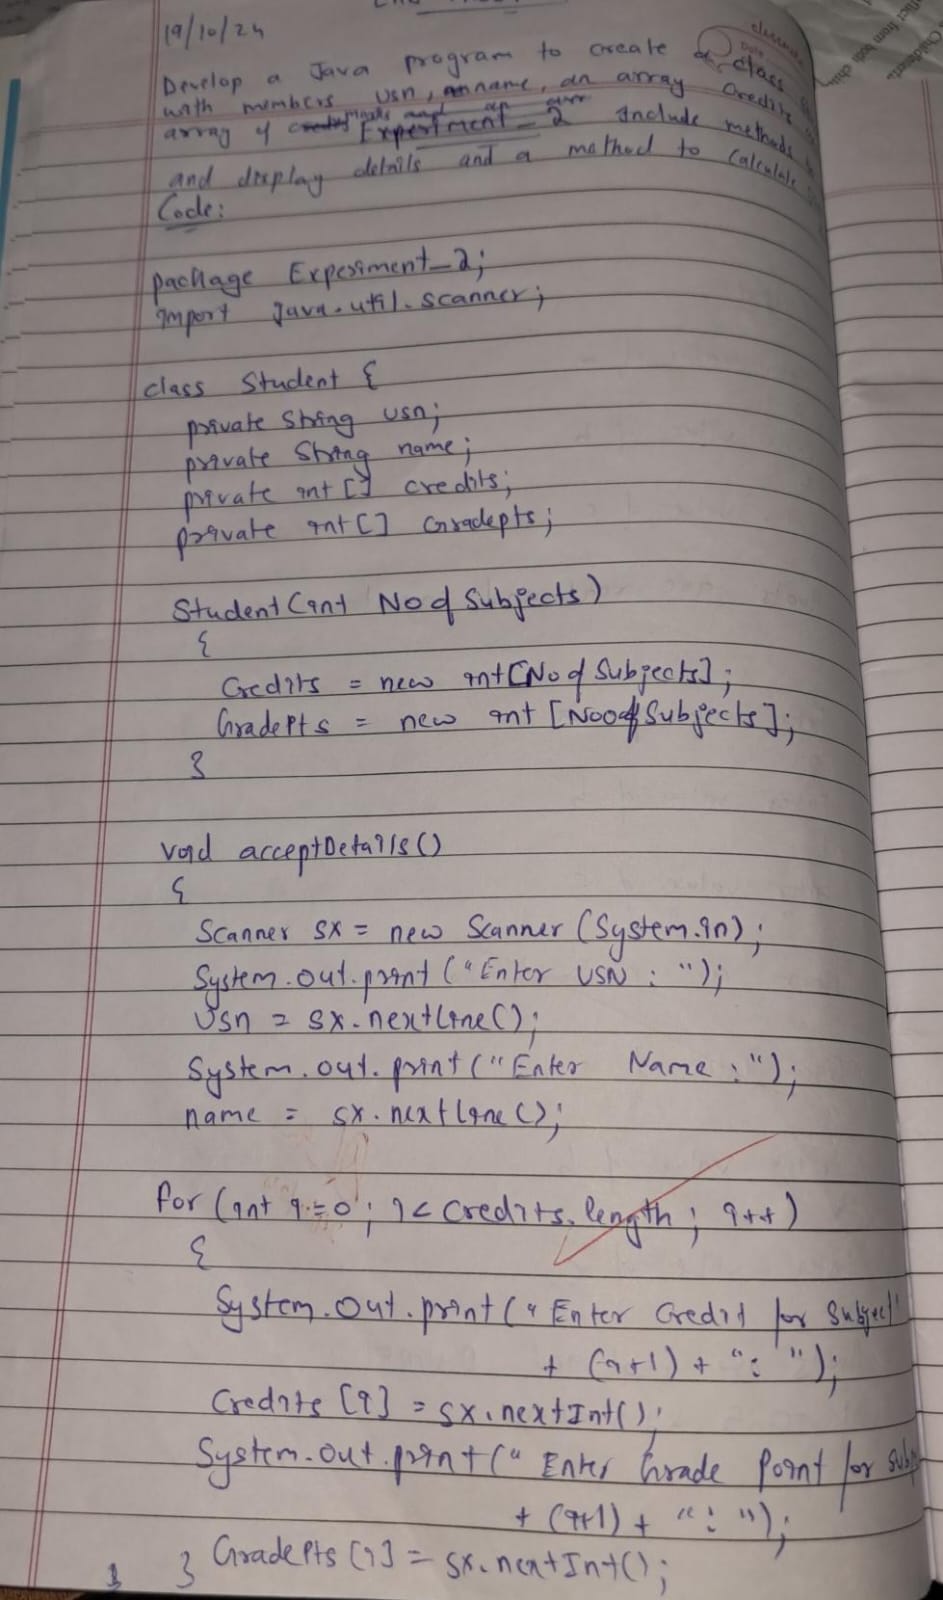 19/10/24
Develop a Java program to create a class
with members usn, name, an array credits
array of
Experiment_2 Include methods
and display details and a method to calculate
Code:
package Experiment_2;
import Java.util.scanner;
class Student {
private String usn;
private String name;
private int [] credits;
private int [] Gradepts;
Student (int No of Subjects)
{
Credits = new int [No of Subjects];
GradePts = new int [No of Subjects];
}
void acceptDetails ()
{
Scanner sx = new Scanner (System.in);
System.out.print ("Enter USN : ");
Usn = sx.nextLine();
System.out.print ("Enter Name : ");
name = sx.nextLine ();
for (int i=0; i< Credits.length; i++)
{
System.out.print (" Enter Credit for Subject"
+ (i+1) + ": ");
Credits [i] = sx.nextInt();
System.out.print (" Enter Grade Point for
+ (i+1) + ": ");
GradePts [i] = sx.nextInt();
}
}